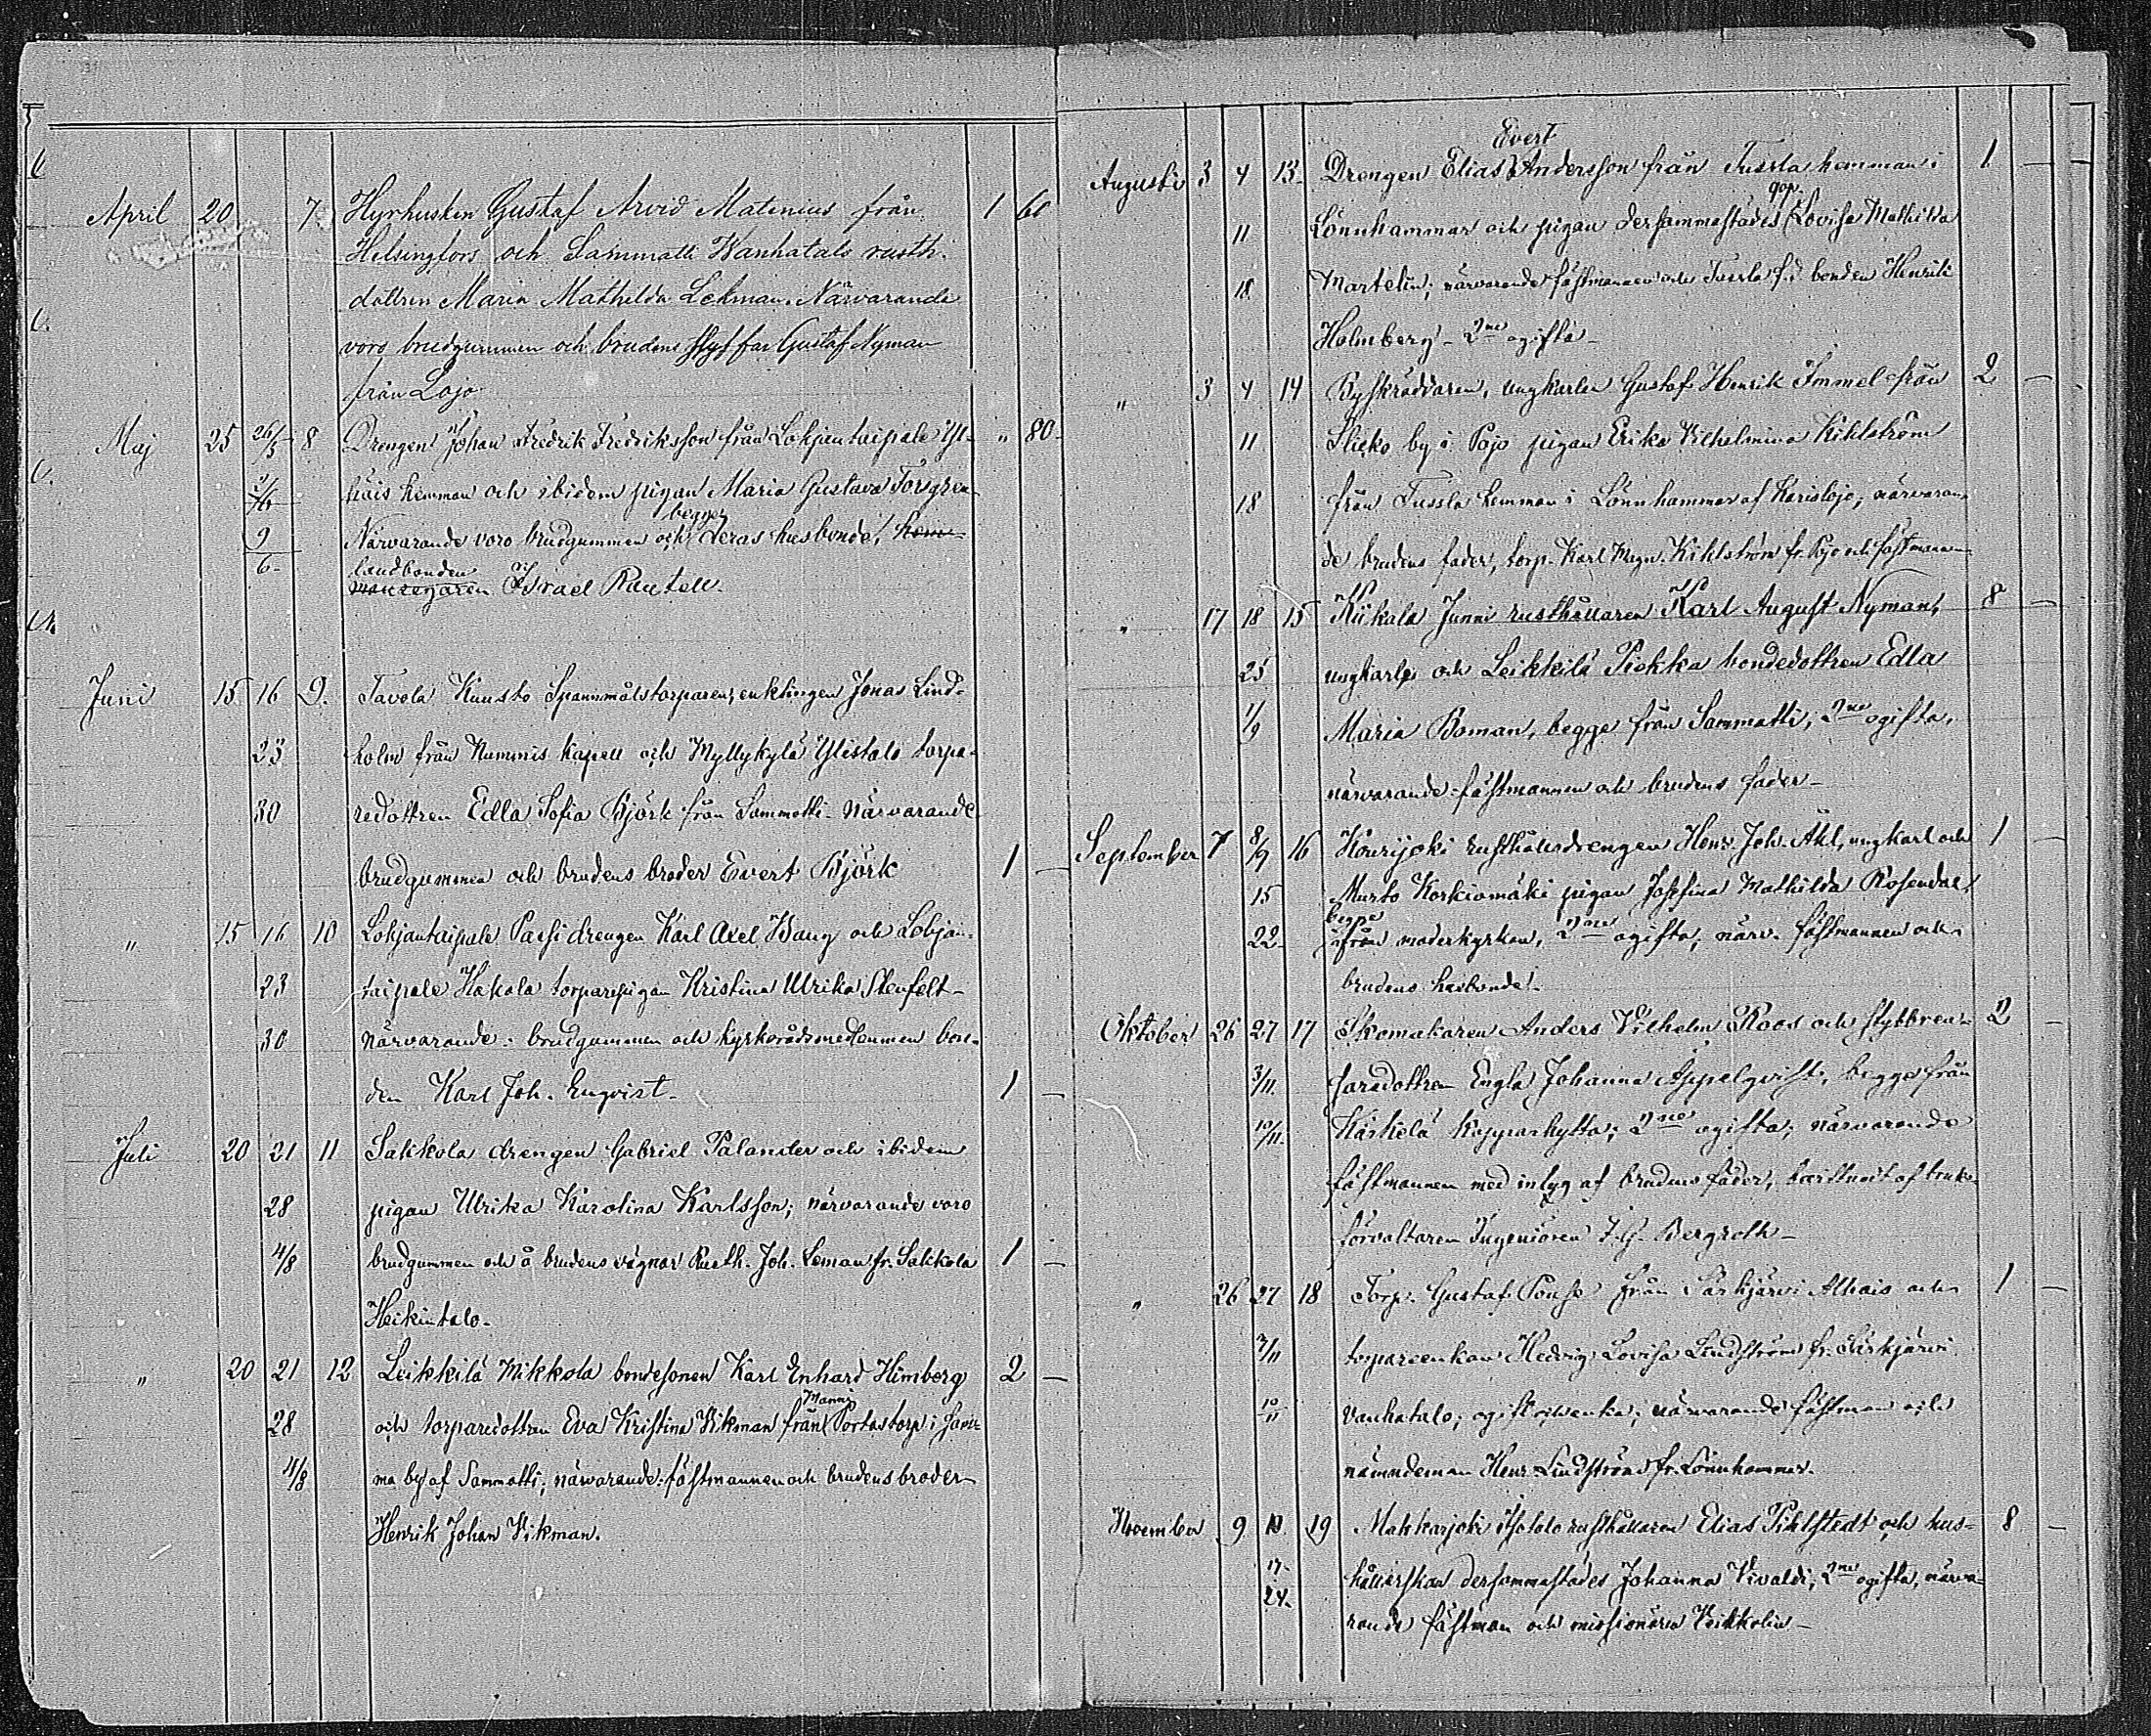 April 20 7. Hyrkusken Gustaf Arvid Matenius från 1 60
Helsingfors och Sammatti Wanhatalo rusth.
dottren Maria Mathilda Lehman. Närvarande
voro brudgummen och brudens far Gustaf Nyman
från Lojo
Maj 25 26/5 8 Drengen Johan Fredrik Fredriksson från Lohjantaipale Yli- " 80
häis hemman och ibidem pigan Maria Gustava Forsgren
begges
9 Närvarande voro brudgummen och deras husbonde, hem-
landbonden
6 mansegaren Israel Rautell.
Juni 15 16 9. Tavola Kunsto Spannmålstorparen, enklingen Jonas Lind-
23 holm från Nummis kapell och Myllykylä Ylistalo torpa-
30 redottren Edla Sofia Björk från Sammatti. Närvarande
brudgummen och brudens broder Evert Björk 1 —
" 15 16 10 Lohjantaipale Passi drengen Karl Axel Haug och Lohjan-
23 taipale Hakala torparepigan Kristina Ulrika Stenfelt-
30 närvarande: brudgummen och kyrkorådsmedlemmen bon-
den Karl Joh. Enqvist. 1 —
Juli 20 21 11 Sakkola drengen Gabriel Palander och ibidem
28 pigan Ulrika Karolina Karlsson; närvarande voro
4/8 brudgummen och å brudens vägnar Rusth. Joh. Leman fr. Sakkola 1 —
Heikintalo.
" 20 21 12 Leikkilä Mikkola bondesonen Karl Enhard Himberg 2 —
Manni
28 och torparedottren Eva Kristina Vikman från Portastorp i sam-
4/8 ma by af Sammatti; närvarande: fästmannen och brudens broder
Henrik Johan Vikman.
Evert
Augusti 3 4 13. Drengen Elias Andersson från Tussla hemman i 1 —
qvp.
11 Lönnhammar och pigan dersammastädes Lovisa Mathilda
18 Martelin; närvarande fästmannen och Tussla f.d. bonden Henrik
Holmberg - 2ne ogifta -
" 3 4 14 Byskräddaren, ungkarlen Gustaf Henrik Immel från 2 —
11 Slicko by i Pojo pigan Erika Vilhelmina Kihlström
18 från Tussla hemman i Lönnhammar af Karislojo; närvaran-
de brudens fader, torp. Karl Magn. Kihlström fr. Pojo och fästmannen
" 17 18 15 Kiikala Junni rusthållaren Karl August Nyman, 8 —
25 ungkarl och Leikkilä Piekka bondedottren Edla
1/9 Maria Boman, begge från Sammatti, 2ne ogifta,
närvarande fästmannen och brudens fader -
September 7 8/9 16 Kourijoki rusthållsdrengen Henr. Joh. Ahl, ungkarl och 1 —
15 Murto Korkiamäki pigan Josefina Mathilda Rosendal,
begge
22 från moderkyrkan, 2ne ogifta, närv. fästmannen och
brudens husbonde.
Oktober 26 27 17 Skomakaren Anders Vilhelm Roos och styttbren- 2 —
3/11 naredottren Engla Johanna Appelqvist, begge från
10/11 Kärkelä kopparhytta; 2ne ogifta; närvarande
fästmannen med intyg af brudens fader, bevittnadt af bruks-
förvaltaren Ingeniören F.G. Bergroth -
" 26 27 18 Torp. Gustaf Ponse från Särkjärvi Alhais och 1 —
3/11 torpareenkan Hedvig Lovisa Lindström fr. Särkjärvi
10/11 Vanhatalo; ogift och enka; närvarande fästman och
nämndeman Henr. Lindström fr. Lönnhammar.
November 9 10 19 Makkarjoki Isotalo rusthållaren Elias Pihlstedt och hus- 8 —
17. hållerskan dersammastädes Johanna Vivaldi, 2ne ogifta, närva-
24. rande fästman och missionären Veikkolin -